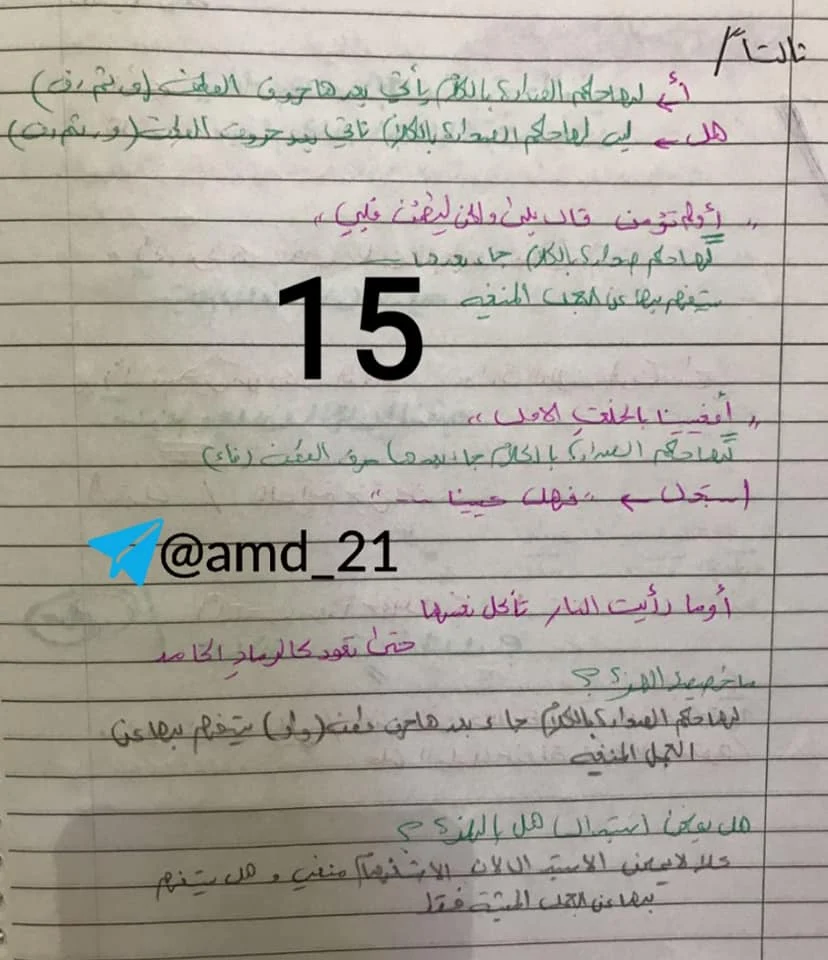 ثالثاً /
أ ← لها حكم الصدارة بالكلام يأتي بعدها حروف العطف (و، ثم، ف)
هل ← ليس لها حكم الصدارة بالكلام تأتي بعد حروف العطف (و، ثم، ف)
"أولم تؤمن قال بلى ولكن ليطمئن قلبي"
لها حكم صدارة بالكلام جاء بعدها
يستفهم بها عن الجمل المنفيه
15
"أفعيينا بالخلق الأول"
لها حكم الصدارة بالكلام جاء بعدها حرف العطف (فاء)
استبدل ← "فهل عيينا
@amd_21
أوما رأيت النار تأكل نفسها
حتى تعود كالرماد الخامد
ما خصيصة الهمزة ؟
لها حكم الصدارة بالكلام جاء بعدها حرف عطف (واو) يستفهم بها عن
الجمل المنفيه
هل يمكن استبدال هل بالهمزة ؟
كلا لا يمكن الاستبدال لان الاستفهام منفي و هل يستفهم
بها عن الجمل المثبتة فقط